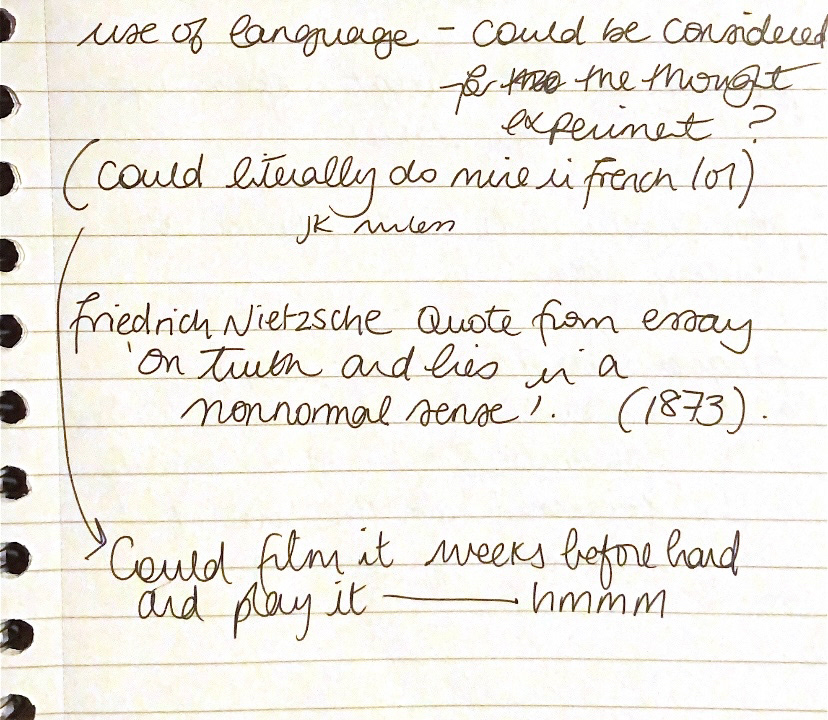 use of language - could be considered
for the thought
experiment ?
(could literally do mine in french lol)
jk unless
Friedrich Nietzsche Quote from essay
'On truth and lies in a
nonnormal sense'. (1873).
Could film it weeks before hand
and play it — hmmm